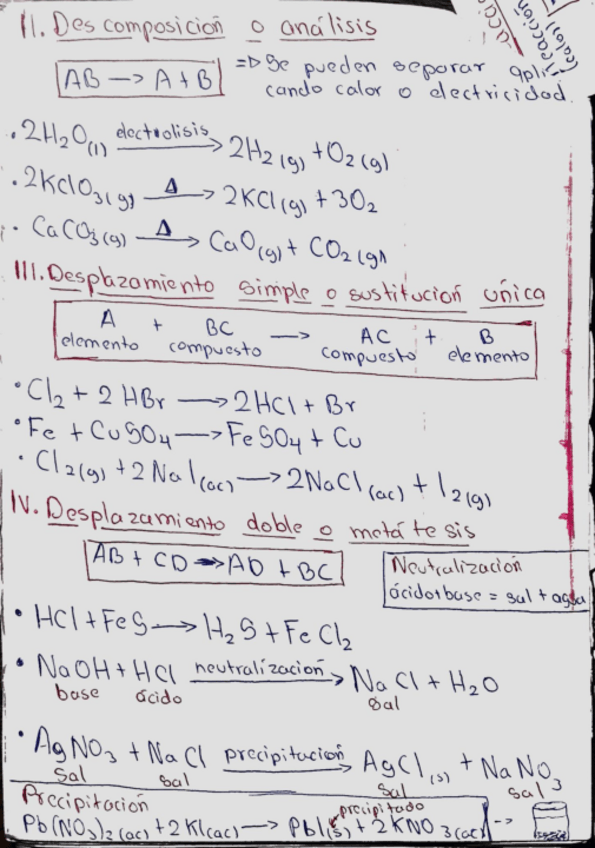 II. Descomposición o análisis
AB → A + B
⇒ Se pueden separar apli-
cando calor o electricidad.
• 2H₂O(l) electrolisis → 2H₂(g) + O₂(g)
• 2KClO₃(g) Δ → 2KCl(g) + 3O₂
• CaCO₃(g) Δ → CaO(g) + CO₂(g)
III. Desplazamiento simple o sustitución única
A + BC → AC + B
elemento compuesto compuesto elemento
• Cl₂ + 2HBr → 2HCl + Br
• Fe + CuSO₄ → FeSO₄ + Cu
• Cl₂(g) + 2NaI(ac) → 2NaCl(ac) + I₂(g)
IV. Desplazamiento doble o metátesis
AB + CD → AD + BC
Neutralización
ácido+base = sal + agua
• HCl + FeS → H₂S + FeCl₂
• NaOH + HCl neutralización → NaCl + H₂O
base ácido sal
• AgNO₃ + NaCl precipitación → AgCl(s) + NaNO₃
sal sal sal sal
Precipitación
precipitado
Pb(NO₃)₂(ac) + 2KI(ac) → PbI(s) + 2KNO₃(ac)